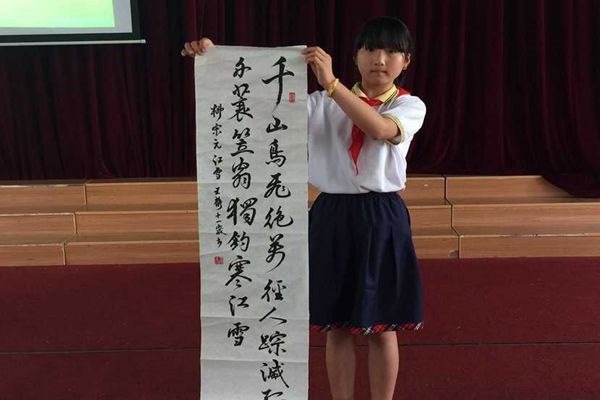 千山鳥飛絶萬徑人踪滅孤
舟蓑笠翁獨釣寒江雪
柳宗元江雪王十一歲书